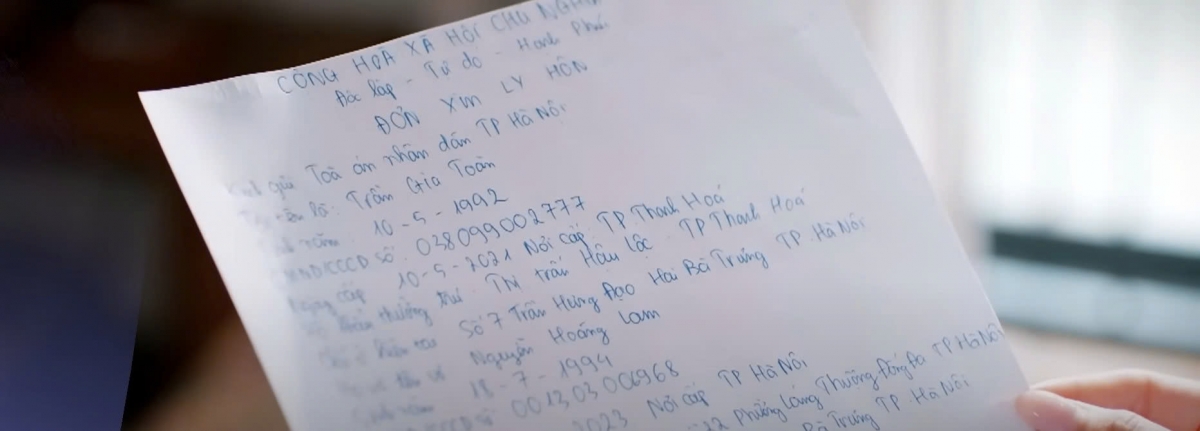 CỘNG HOÀ XÃ HỘI CHỦ NGHĨA
Độc lập - Tự do - Hạnh Phúc
ĐƠN XIN LY HÔN
Kính gửi Toà án nhân dân TP Hà Nội
Tên tôi là: Trần Gia Toàn
Sinh năm: 10-5-1992
CMND/CCCD số: 038099002777
Ngày cấp 10-5-2021 Nơi cấp: TP Thanh Hoá
thường trú: Thị trấn Hậu Lộc - TP Thanh Hoá
Số 7 Trần Hưng Đạo Hai Bà Trưng TP. Hà Nội
Nguyễn Hoàng Lam
Sinh năm 18-7-1994
CCCD số 001303006968
2023 Nơi cấp TP Hà Nội
22 Phường Láng Thượng Đống Đa TP Hà Nội
Bà Trưng TP. Hà Nội